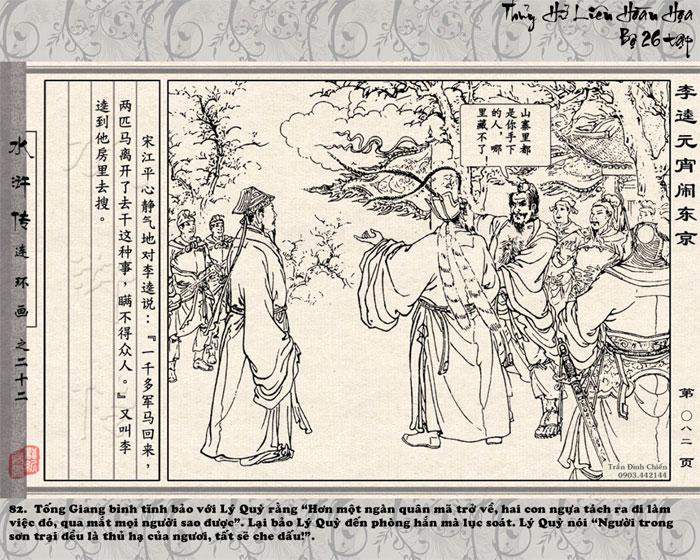 Thủy Hử Liên Hoàn Họa
Bộ 26 tập
李逵元宵闹东京
第〇八二页
山寨里都
是你手下
的人，哪
里藏不了！
宋江平心静气地对李逵说：『一千多军马回来，
两匹马离开了去干这种事，瞒不得众人。』又叫李
逵到他房里去搜。
水浒传连环画之二十二
Trần Đình Chiến
0903.442144
82. Tống Giang bình tĩnh bảo với Lý Quỳ rằng “Hơn một ngàn quân mã trở về, hai con ngựa tách ra đi làm
việc đó, qua mắt mọi người sao được”. Lại bảo Lý Quỳ đến phòng hắn mà lục soát. Lý Quỳ nói “Người trong
sơn trại đều là thủ hạ của ngươi, tất sẽ che dấu!”.